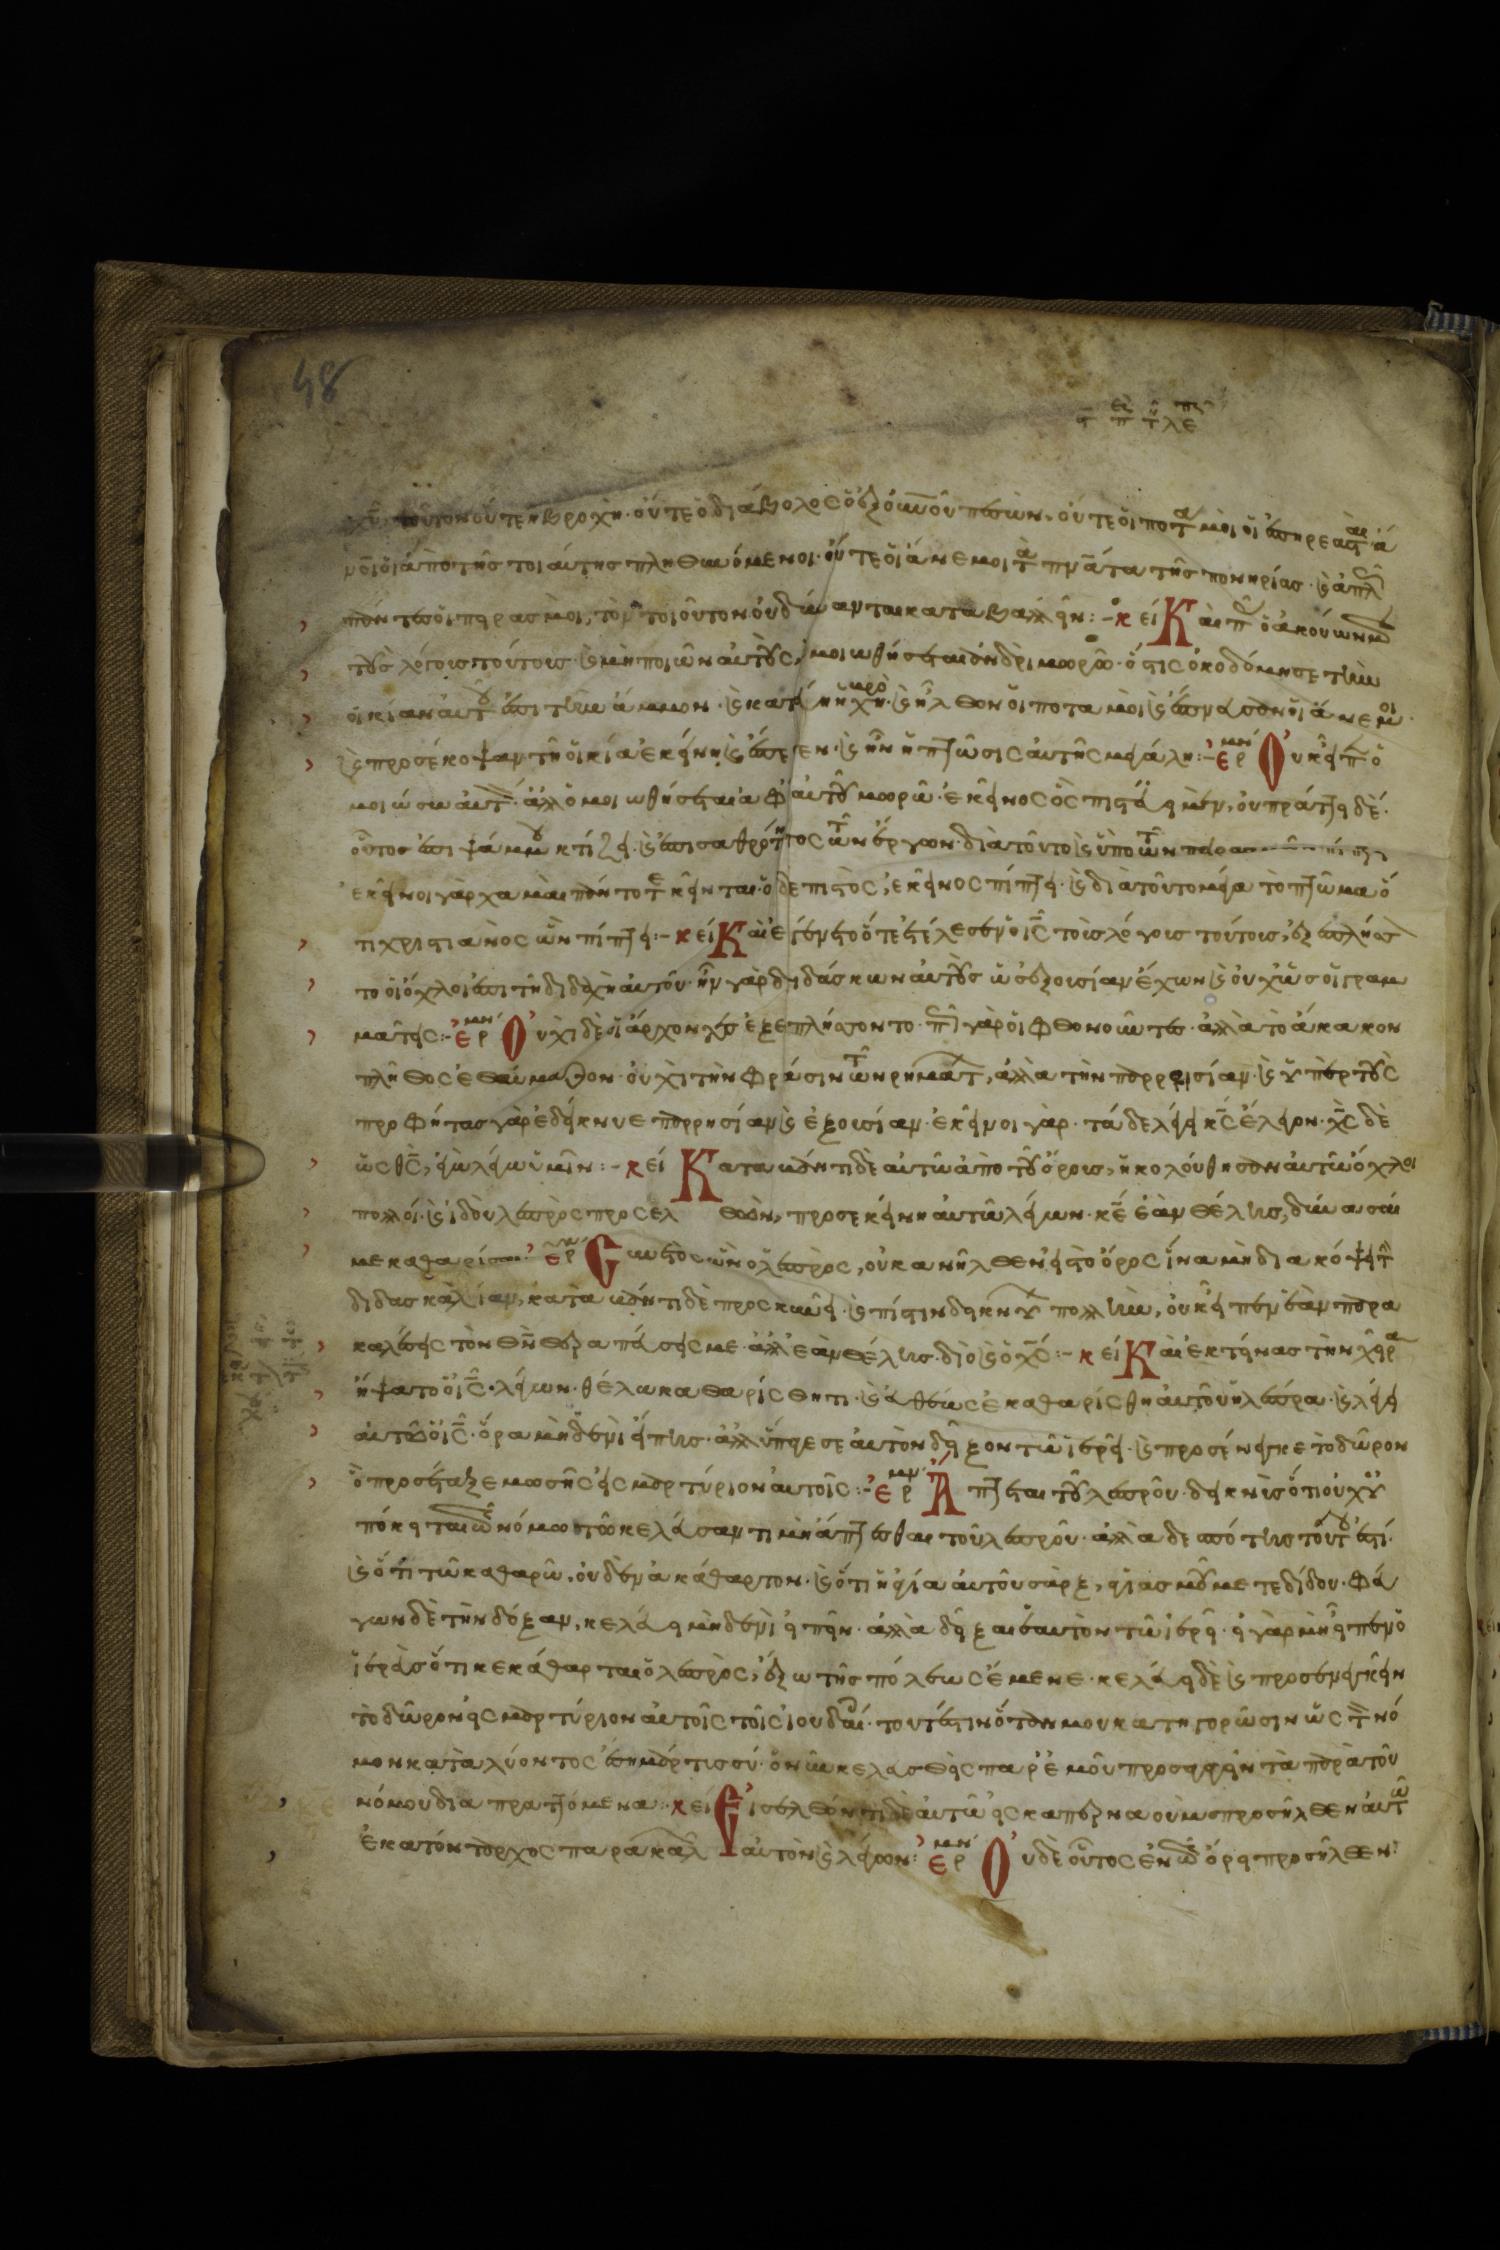 48
τοῦτον οὔτε ἡ βροχὴ· οὔτε ὁ διάβολος ὁ ἐξ οὐνοῦ πεσὼν, οὔτε οἱ ποτ μοὶ οἱ
οἱ ἀπὸ τῆς τοιαύτης πληθυνόμενοι· οὔτε οἱ ἄνεμοι τὰ πνᾶτα τῆς πονηρίας·
πάντες οἱ πειρασμοὶ, τὸν τοιοῦτον οὐ δύνανται καταβαλεῖν :- κεί Καὶ π ὁ ἀκούων μ
τοὺς λόγους τούτους καὶ μὴ ποιῶν αὐτοὺς, ὁμοιωθήσεται ἀνδρὶ μωρῶ· ὅστις ὠκοδόμησε τὴν
οἰκίαν αὐτ ἐπὶ τὴν ἄμμον· καὶ κατέβη ἡ βροχὴ· καὶ ἦλθον οἱ ποταμοὶ καὶ ἔπνευσαν οἱ ἄνεμοι
καὶ προσέκοψαν τῆ οἰκία ἐκείνη καὶ ἔπεσεν· καὶ ἦν ἡ πτῶσις αὐτῆς μεγάλη :- ἑρμν Οὐκ εἶπ ὁ
μοιώσω αὐτ· ἀλλ ὁμοιωθήσεται ἀφ αὑτοῦ μωρῶ· ἐκεῖνος ὃς πιστεύει μὲν, οὐ πράττει δέ·
οὗτος ἐπὶ ψάμμου κτίζει· καὶ ἐπὶ σαθρότητος τῶν ἔργων· διὰ τοῦτο καὶ ὑπὸ τῶν
ἐκεῖνοι γὰρ χαμαὶ πάντοτε κεῖνται· ὁ δὲ πιστὸς, ἐκεῖνος πίπτει· καὶ διὰ τοῦτο μέγα τὸ πτῶμα ὅ
τι χριστιανὸς ὢν πίπτει :- κεί Καὶ ἐγένετο ὅτε ἐτέλεσεν ὁ ις τοὺς λόγους τούτους, ἐξεπλήσσ
το οἱ ὄχλοι ἐπὶ τῆ διδαχῆ αὐτοῦ· ἦν γὰρ διδάσκων αὐτοὺς ὡς ἐξουσίαν ἔχων καὶ οὐχ ὡς οἱ γραμ
ματεῖς :- ἑρμν Οὐχὶ δὲ οἱ ἄρχοντες ἐξεπλήσσοντο· π γὰρ οἱ φθονοῦντες· ἀλλὰ τὸ ἄκακον
πλῆθος ἐθαύμαζον· οὐχὶ τὴν φράσιν τῶν ρημάτ, ἀλλὰ τὴν παρρησίαν· καὶ ὑπὲρ τοὺς
προφήτας γὰρ ἐδείκνυε παρρησίαν καὶ ἐξουσίαν· ἐκεῖνοι γὰρ· τάδε λέγει κς ἔλεγον· χς δὲ
ὡς θς, ἐγὼ λέγω ὑμῖν :- κεί Καταβάντι δὲ αὐτῶ ἀπὸ τοῦ ὄρους, ἠκολούθησαν αὐτῶ ὄχλοι
πολλοί· καὶ ἰδοὺ λεπρὸς προσελθὼν, προσεκύνει αὐτῶ λέγων· κε ἐὰν θέλης, δύνασαί
με καθαρίσαι· ἑρμ Συνετὸς ὢν ὁ λεπρὸς, οὐκ ἀνῆλθεν εἰς τὸ ὄρος ἵνα μὴ διακόψη τ
διδασκαλίαν, καταβάντι δὲ προσκυνεῖ· καὶ πίστιν δεικνύ πολλὴν, οὐκ εἶπεν ἐὰν παρα
καλέσης τὸν θν θεραπεύσεις με· ἀλλ ἐὰν θέλης· διὸ καὶ ὁ χς :- κεί Καὶ ἐκτείνας τὴν χεῖρα
ἥψατο ὁ ις· λέγων· θέλω καθαρίσθητι· καὶ εὐθέως ἐκαθαρίσθη αὐτοῦ ἡ λέπρα· καὶ λέγει
αὐτῶ ὁ ις· ὅρα μηδενὶ εἴπης· ἀλλ ὕπαγε σεαυτὸν δεῖξον τῶ ἱερεῖ· καὶ προσένεγκε τὸ δῶρον
ὃ προσέταξε μωσῆς εἰς μαρτύριον αὐτοῖς :- ἑρμν Ἅπτεται τοῦ λεπροῦ· δεικνὺς ὅτι οὐχ ὑ
πόκειται τῶ νόμω τῶ κελεύσαντι μὴ ἅπτεσθαι τοῦ λεπροῦ· ἀλλὰ δεσπότης τούτου ἐστί·
καὶ ὅτι τῶ καθαρῶ, οὐδὲν ἀκάθαρτον· καὶ ὅτι ἡ ἁγία αὐτοῦ σὰρξ, ἁγιασμοῦ μετεδίδου· φεύ
γων δὲ τὴν δόξαν, κελεύει μηδενὶ εἰπεῖν· ἀλλὰ δεῖξαι ἑαυτὸν τῶ ἱερεῖ· εἰ γὰρ μὴ εἶπεν ὁ
ἱερεὺς ὅτι κεκάθαρται ὁ λεπρὸς, ἔξω τῆς πόλεως ἔμενε· κελεύει δὲ καὶ προσενεγκεῖν
τὸ δῶρον εἰς μαρτύριον αὐτοῖς τοῖς ἰουδαί· τουτέστιν ὅταν μου κατηγορῶσιν ὡς τ νό
μον καταλύοντος μάρτις σύ· ὃν κελευσθεὶς παρ ἐμοῦ προσαγαγεῖν τὰ παρὰ τοῦ
νόμου διαπραττόμενα :- κεί Εἰσελθόντι δὲ αὐτῶ εἰς καπερναοὺμ προσῆλθεν αὐτῶ
ἑκατόνταρχος παρακαλ αὐτὸν καὶ λέγων : ἑρμν Οὐδὲ οὗτος ἐν τῶ ὄρει προσῆλθεν·